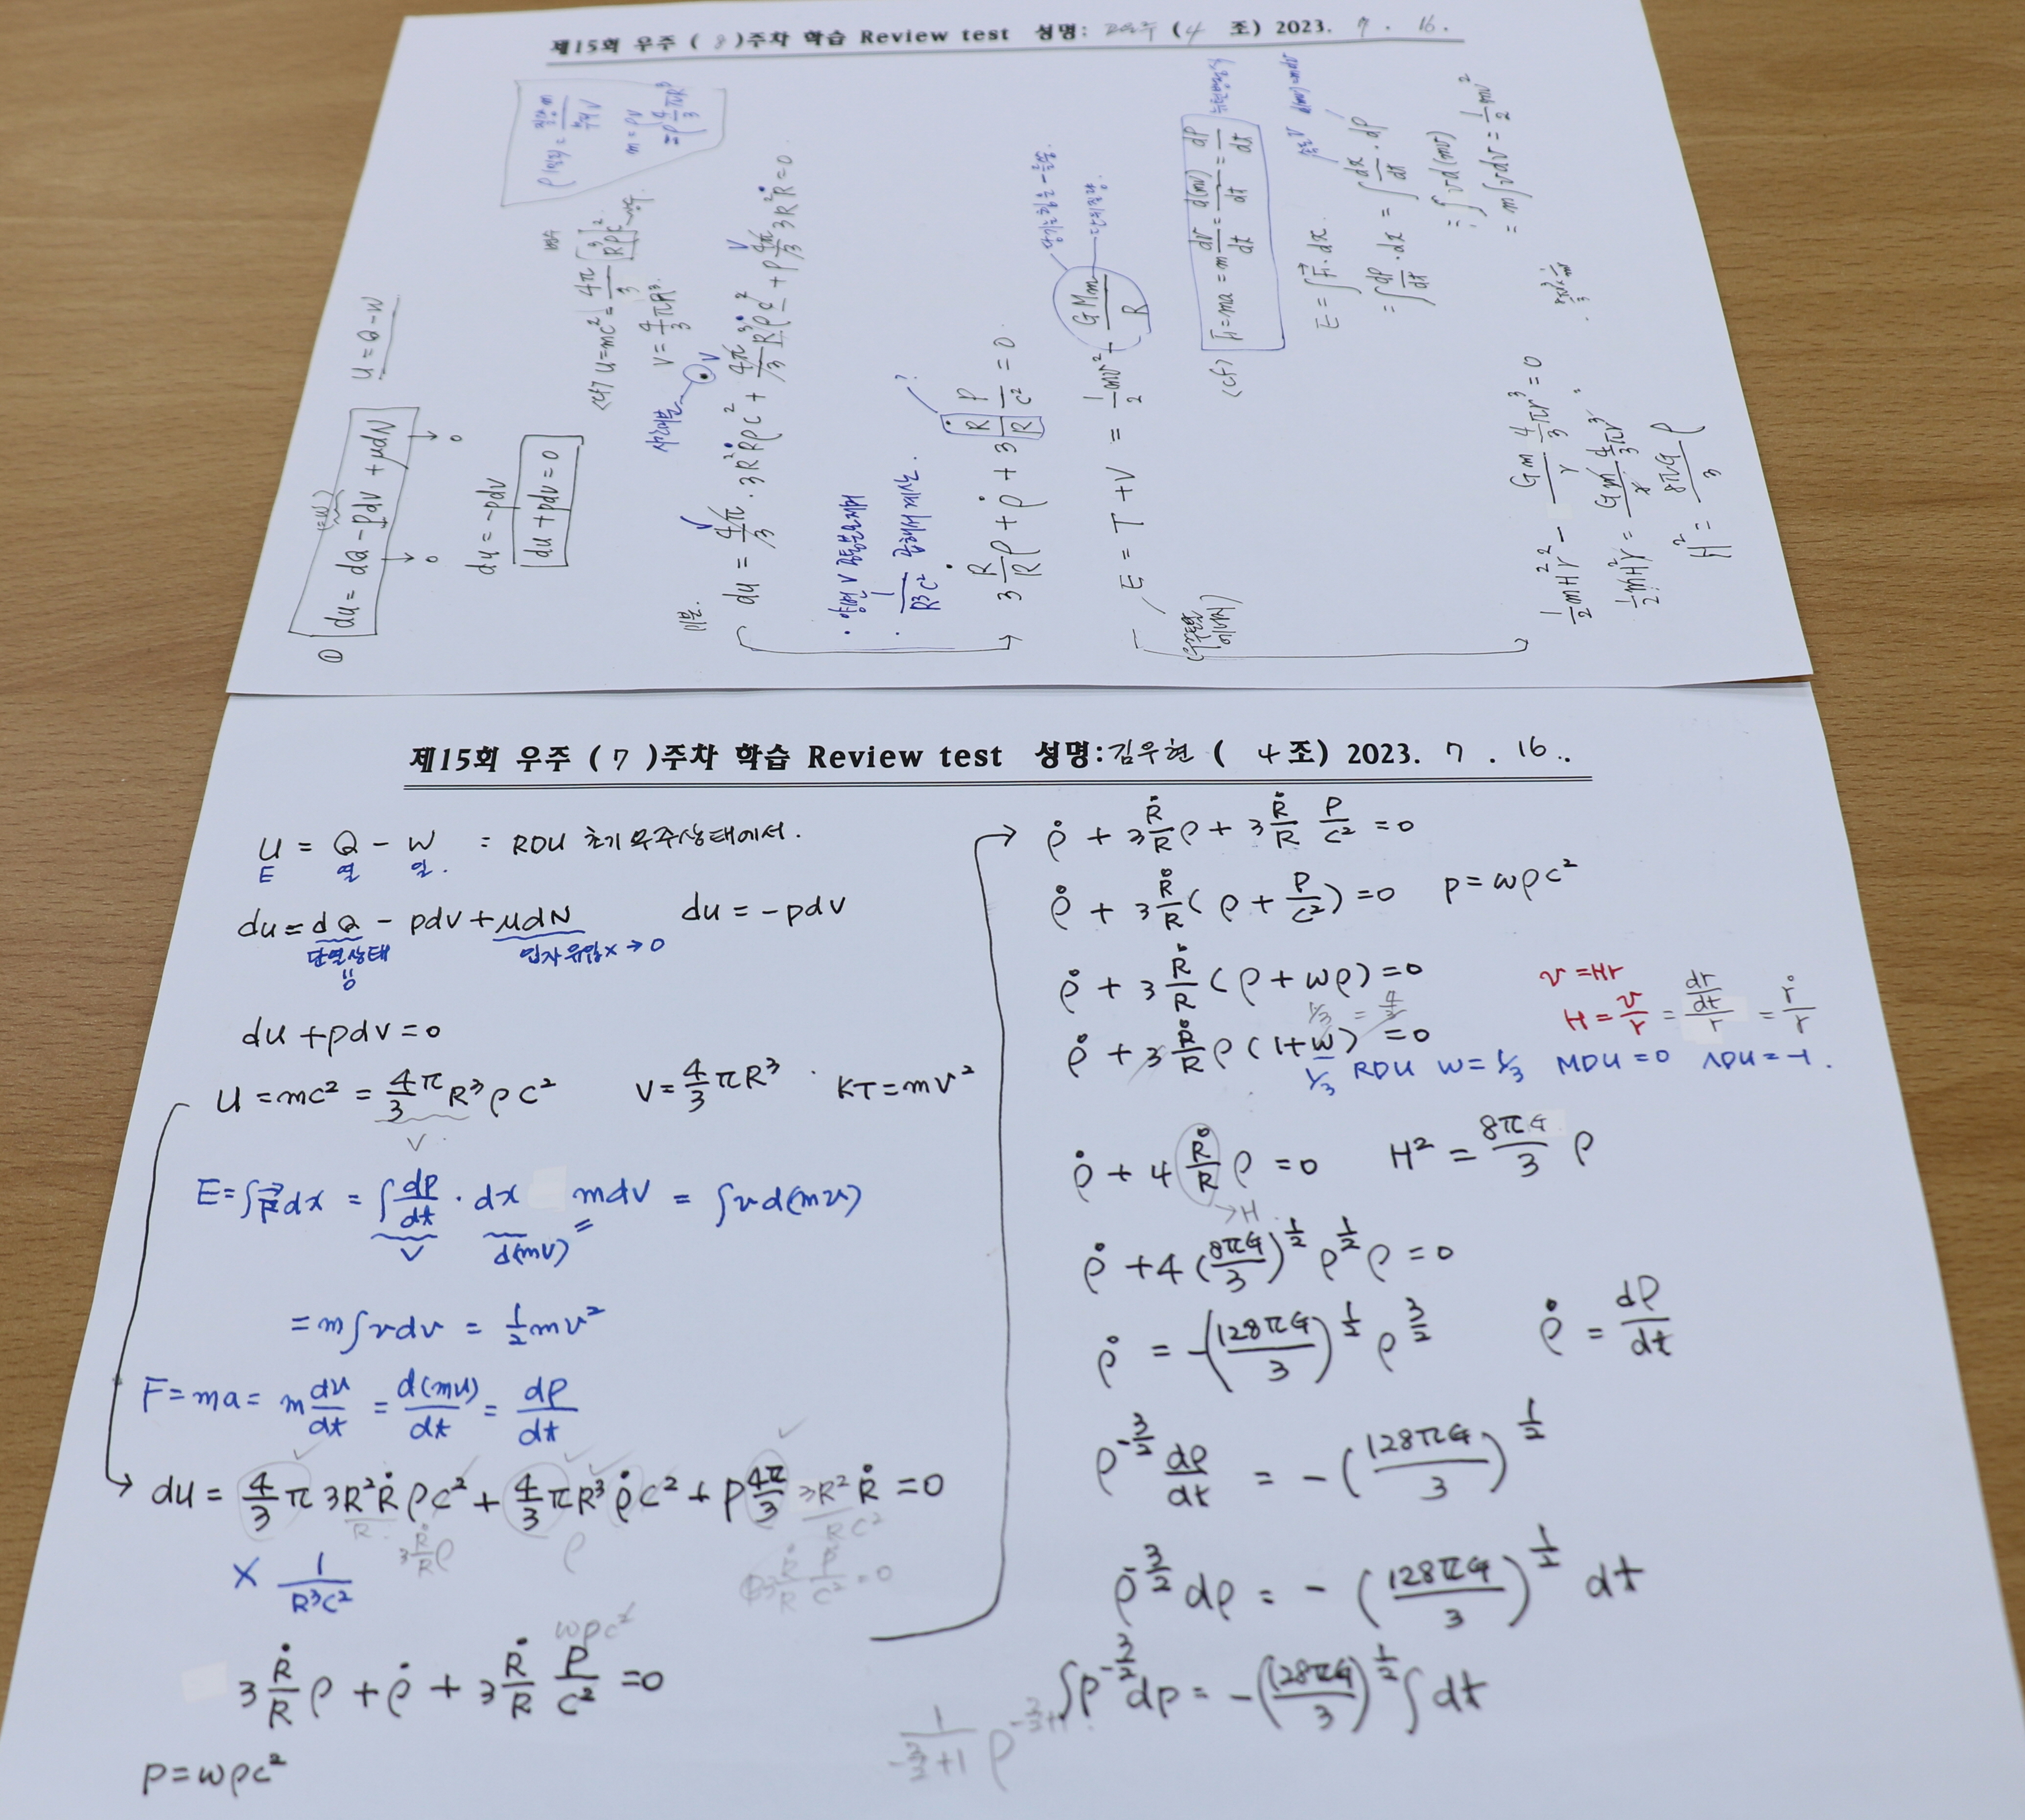 제15회 우주 ( 8 )주차 학습 Review test 성명: (4 조) 2023. 7 . 16 .
① du = dQ - pdv + μdN
U = Q - W
→ 0 → 0
du = -pdv
du + pdv = 0
ρ(밀도) =
m = ρV
= ρ 4/3 πR³
<cf> U = mc² = 4π/3 R³ρc²
V = 4/3 πR³
미분.
du = 4π/3 · 3R²Ṙρc² + 4π/3 R³ρ̇c² + P 4π/3 3R²Ṙ = 0.
· 1/R³c² 곱해서 계산.
?
3 Ṙ/R ρ + ρ̇ + 3 Ṙ/R P/c² = 0.
E = T + V = 1/2 mv² + - GMm/R
<cf> F = ma = m dv/dt = d(mv)/dt = dP/dt
E = ∫F · dx.
= ∫ dP/dt · dx = ∫ dx/dt · dP
= ∫ v d(mv)
= m∫vdv = 1/2 mv²
1/2 mH²r² - Gm 4/3 πr³ρ / r = 0
H² = 8πG/3 ρ
제15회 우주 ( 7 )주차 학습 Review test 성명:김우현 ( 4조) 2023. 7 . 16 ..
U = Q - W = RDU 초기 우주상태에서.
E 열 일.
du = dQ - pdv + μdN du = -pdv
단열상태 입자유입x → 0
0
du + pdv = 0
U = mc² = 4π/3 R³ρc² V = 4/3 πR³ . KT = mv²
V
E = ∫F dx = ∫ dP/dt · dx mdv = ∫vd(mv)
V d(mv) =
= m∫vdv = 1/2 mv²
F = ma = m dv/dt = d(mv)/dt = dP/dt
du = 4/3 π 3R²Ṙρc² + 4/3 πR³ρ̇c² + P 4π/3 3R²Ṙ = 0
R. 3 Ṙ/R ρ ρ RC²
3 Ṙ/R P/C² = 0
× 1/R³C²
wρc²
3 Ṙ/R ρ + ρ̇ + 3 Ṙ/R P/C² = 0
P = wρc²
ρ̇ + 3 Ṙ/R ρ + 3 Ṙ/R P/C² = 0
ρ̇ + 3 Ṙ/R (ρ + P/C²) = 0 P = wρc²
ρ̇ + 3 Ṙ/R (ρ + wρ) = 0
v = Hr
H = v/r = dr/dt / r = ṙ/r
1/3 = 4/3
ρ̇ + 3 Ṙ/R ρ (1 + w) = 0
1/3 RDU W = 1/3 MDU = 0 ΛDU = -1 .
ρ̇ + 4 Ṙ/R ρ = 0 H² = 8πG/3 ρ
→ H
ρ̇ + 4 (8πG/3)^1/2 ρ^1/2 ρ = 0
ρ̇ = -(128πG/3)^1/2 ρ^3/2 ρ̇ = dρ/dt
ρ^-3/2 dρ/dt = - (128πG/3)^1/2
ρ^-3/2 dρ = - (128πG/3)^1/2 dt
∫ρ^-3/2 dρ = -(128πG/3)^1/2 ∫dt
1/(-3/2+1) ρ^-3/2+1